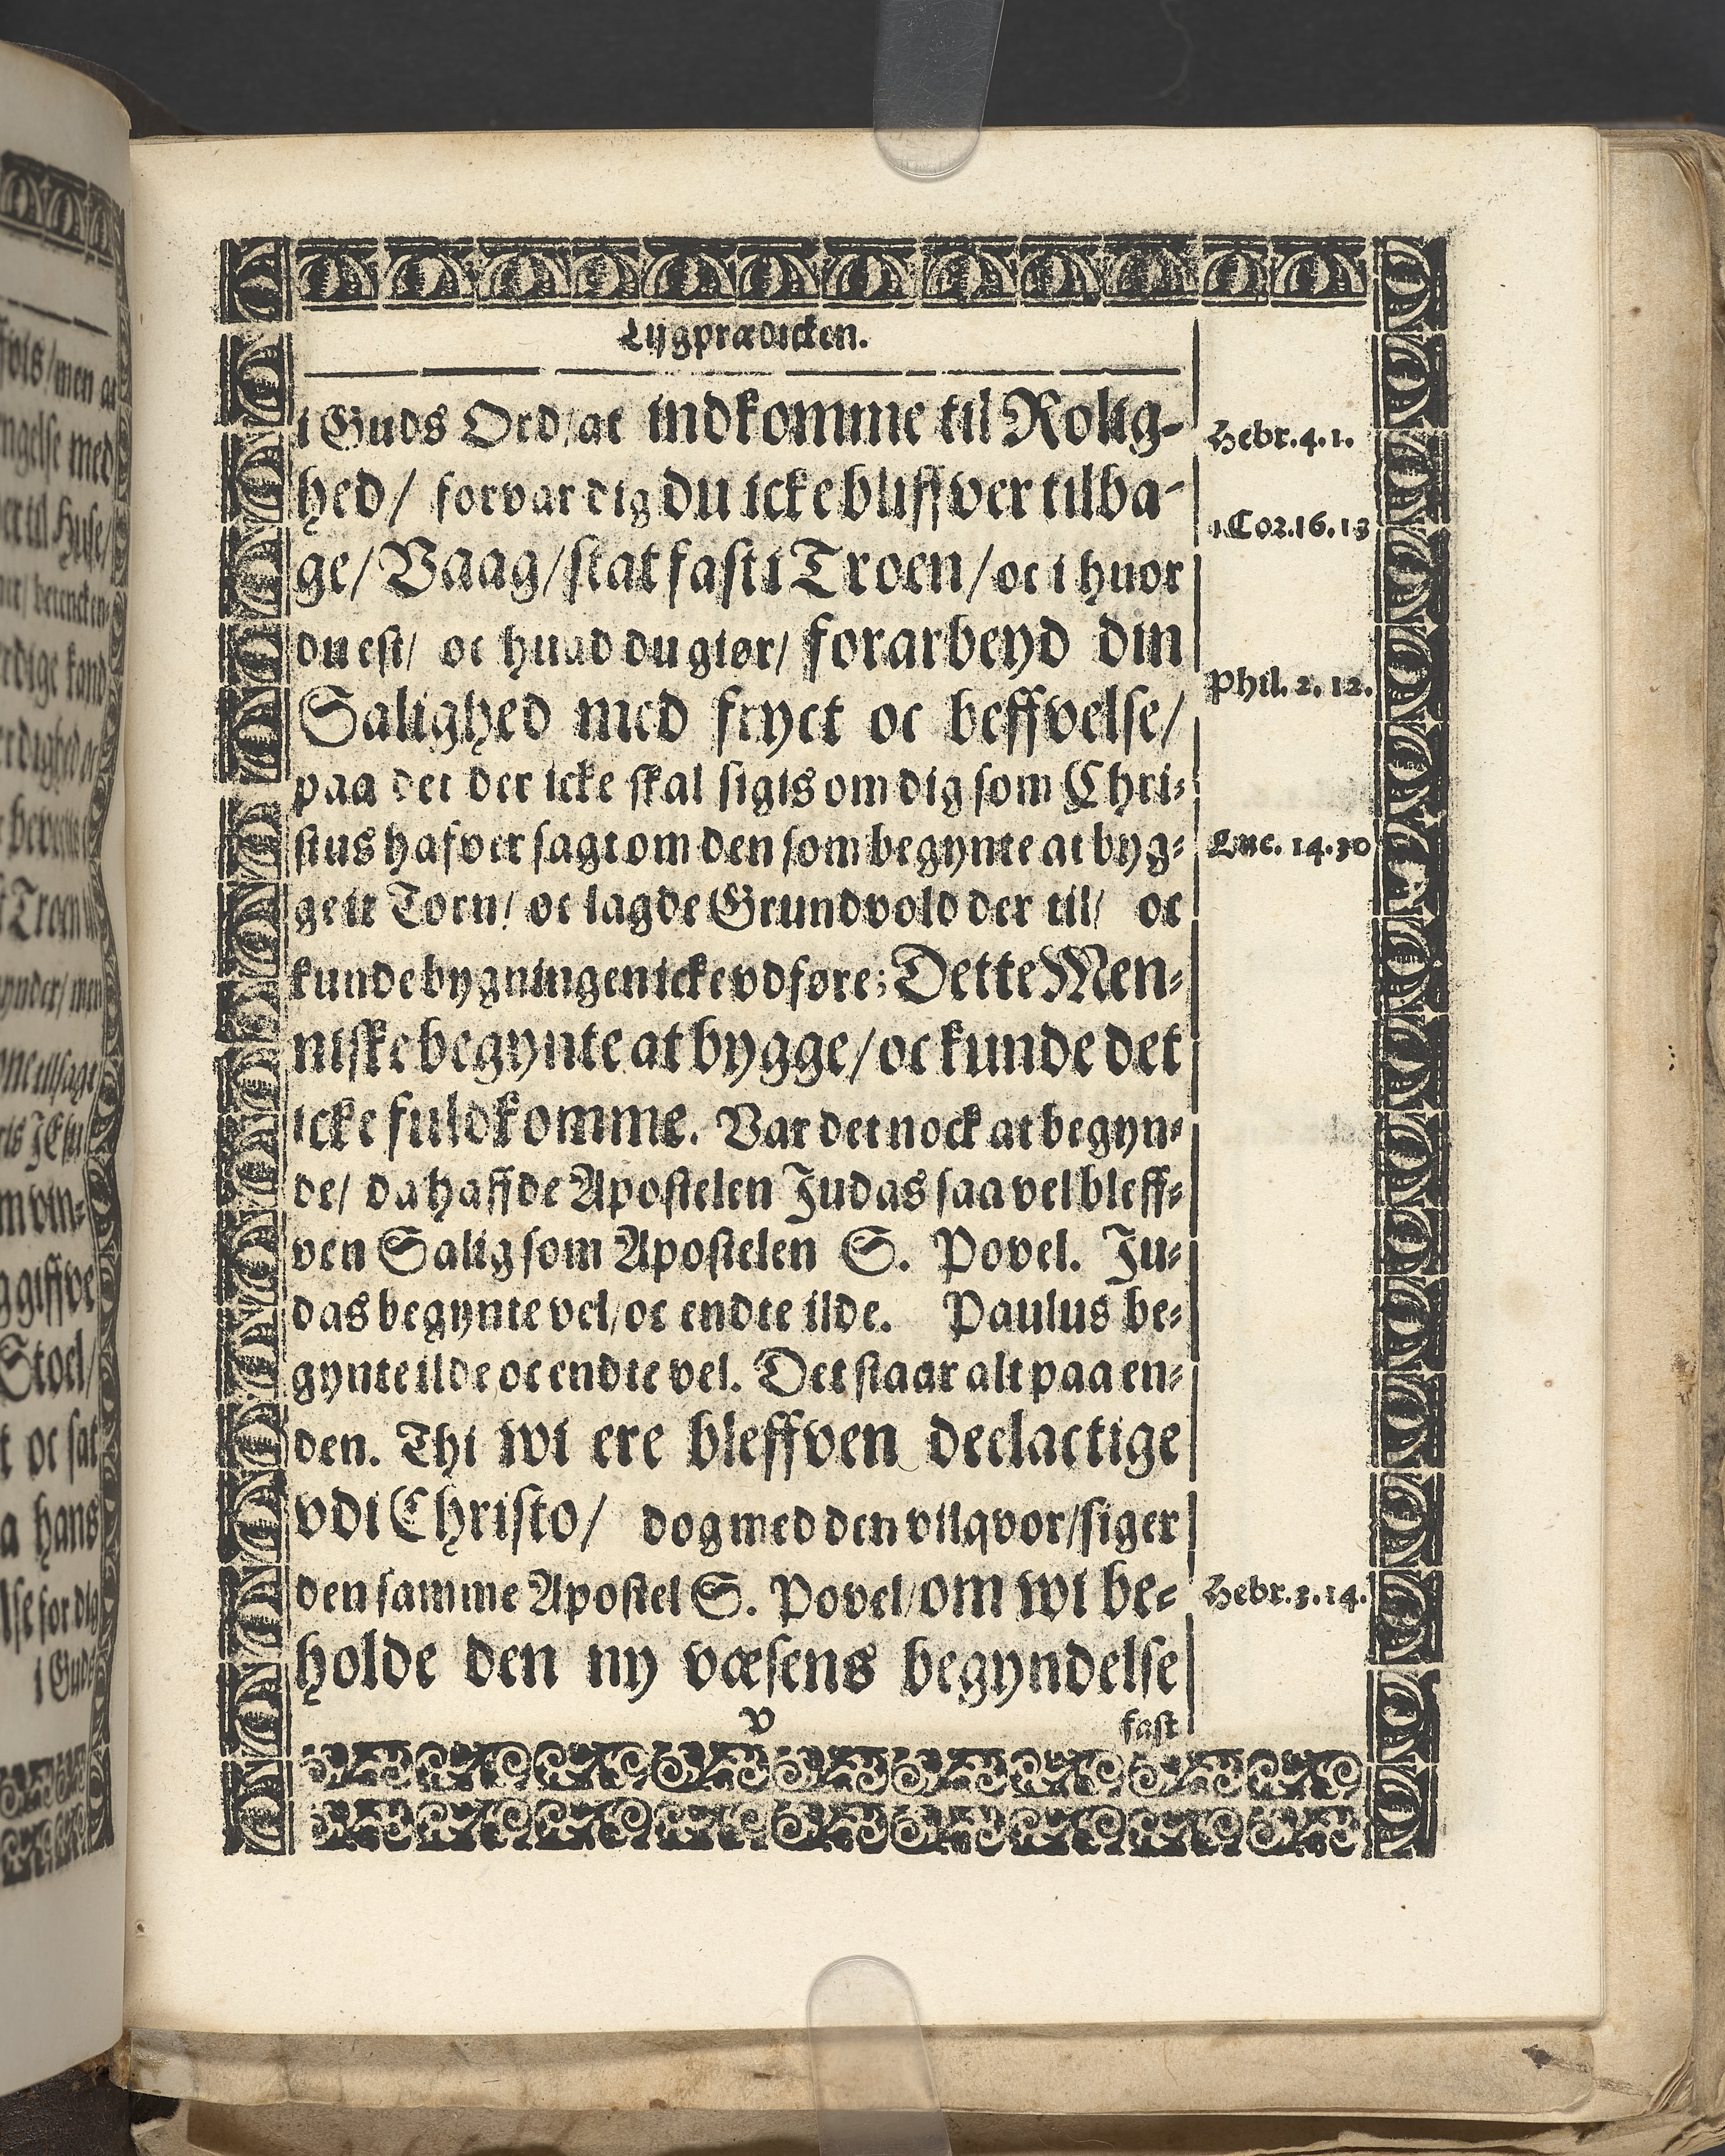 Lijgprædicken.
i Guds Ord/at indkomme til Rolig-
hed/ forvar dig du icke bliffver tilba-
ge/ Vaag/ stat fast i Troen/ oc i huor
du est/ oc huad du giør/ forarbeyd din
Salighed med fryct oc beffvelse/
paa det der icke skal sigis om dig som Chri-
stus hafver sagt om den som begynte at byg-
ge it Torn/ oc lagde Grundvold der til/ oc
kunde bygningen icke vdføre; Dette Men-
niske begynte at bygge/ oc kunde det
icke fuldkomme. Var det nock at begyn-
de/ da haffde Apostelen Judas saa vel bleff-
ven Salig som Apostelen S. Povel. Ju-
das begynte vel/ oc endte ilde. Paulus be-
gynte ilde oc endte vel. Det staar alt paa en-
den. Thi wi ere bleffven deelactige
vdi Christo/ dog med den vilqvor/ siger
den samme Apostel S. Povel/ om wi be-
holde den ny væsens begyndelse
v
fast
Hebr. 4. 1.
1 Cor. 16. 13
Phil. 2. 12.
Luc. 14. 30
Hebr. 3. 14.